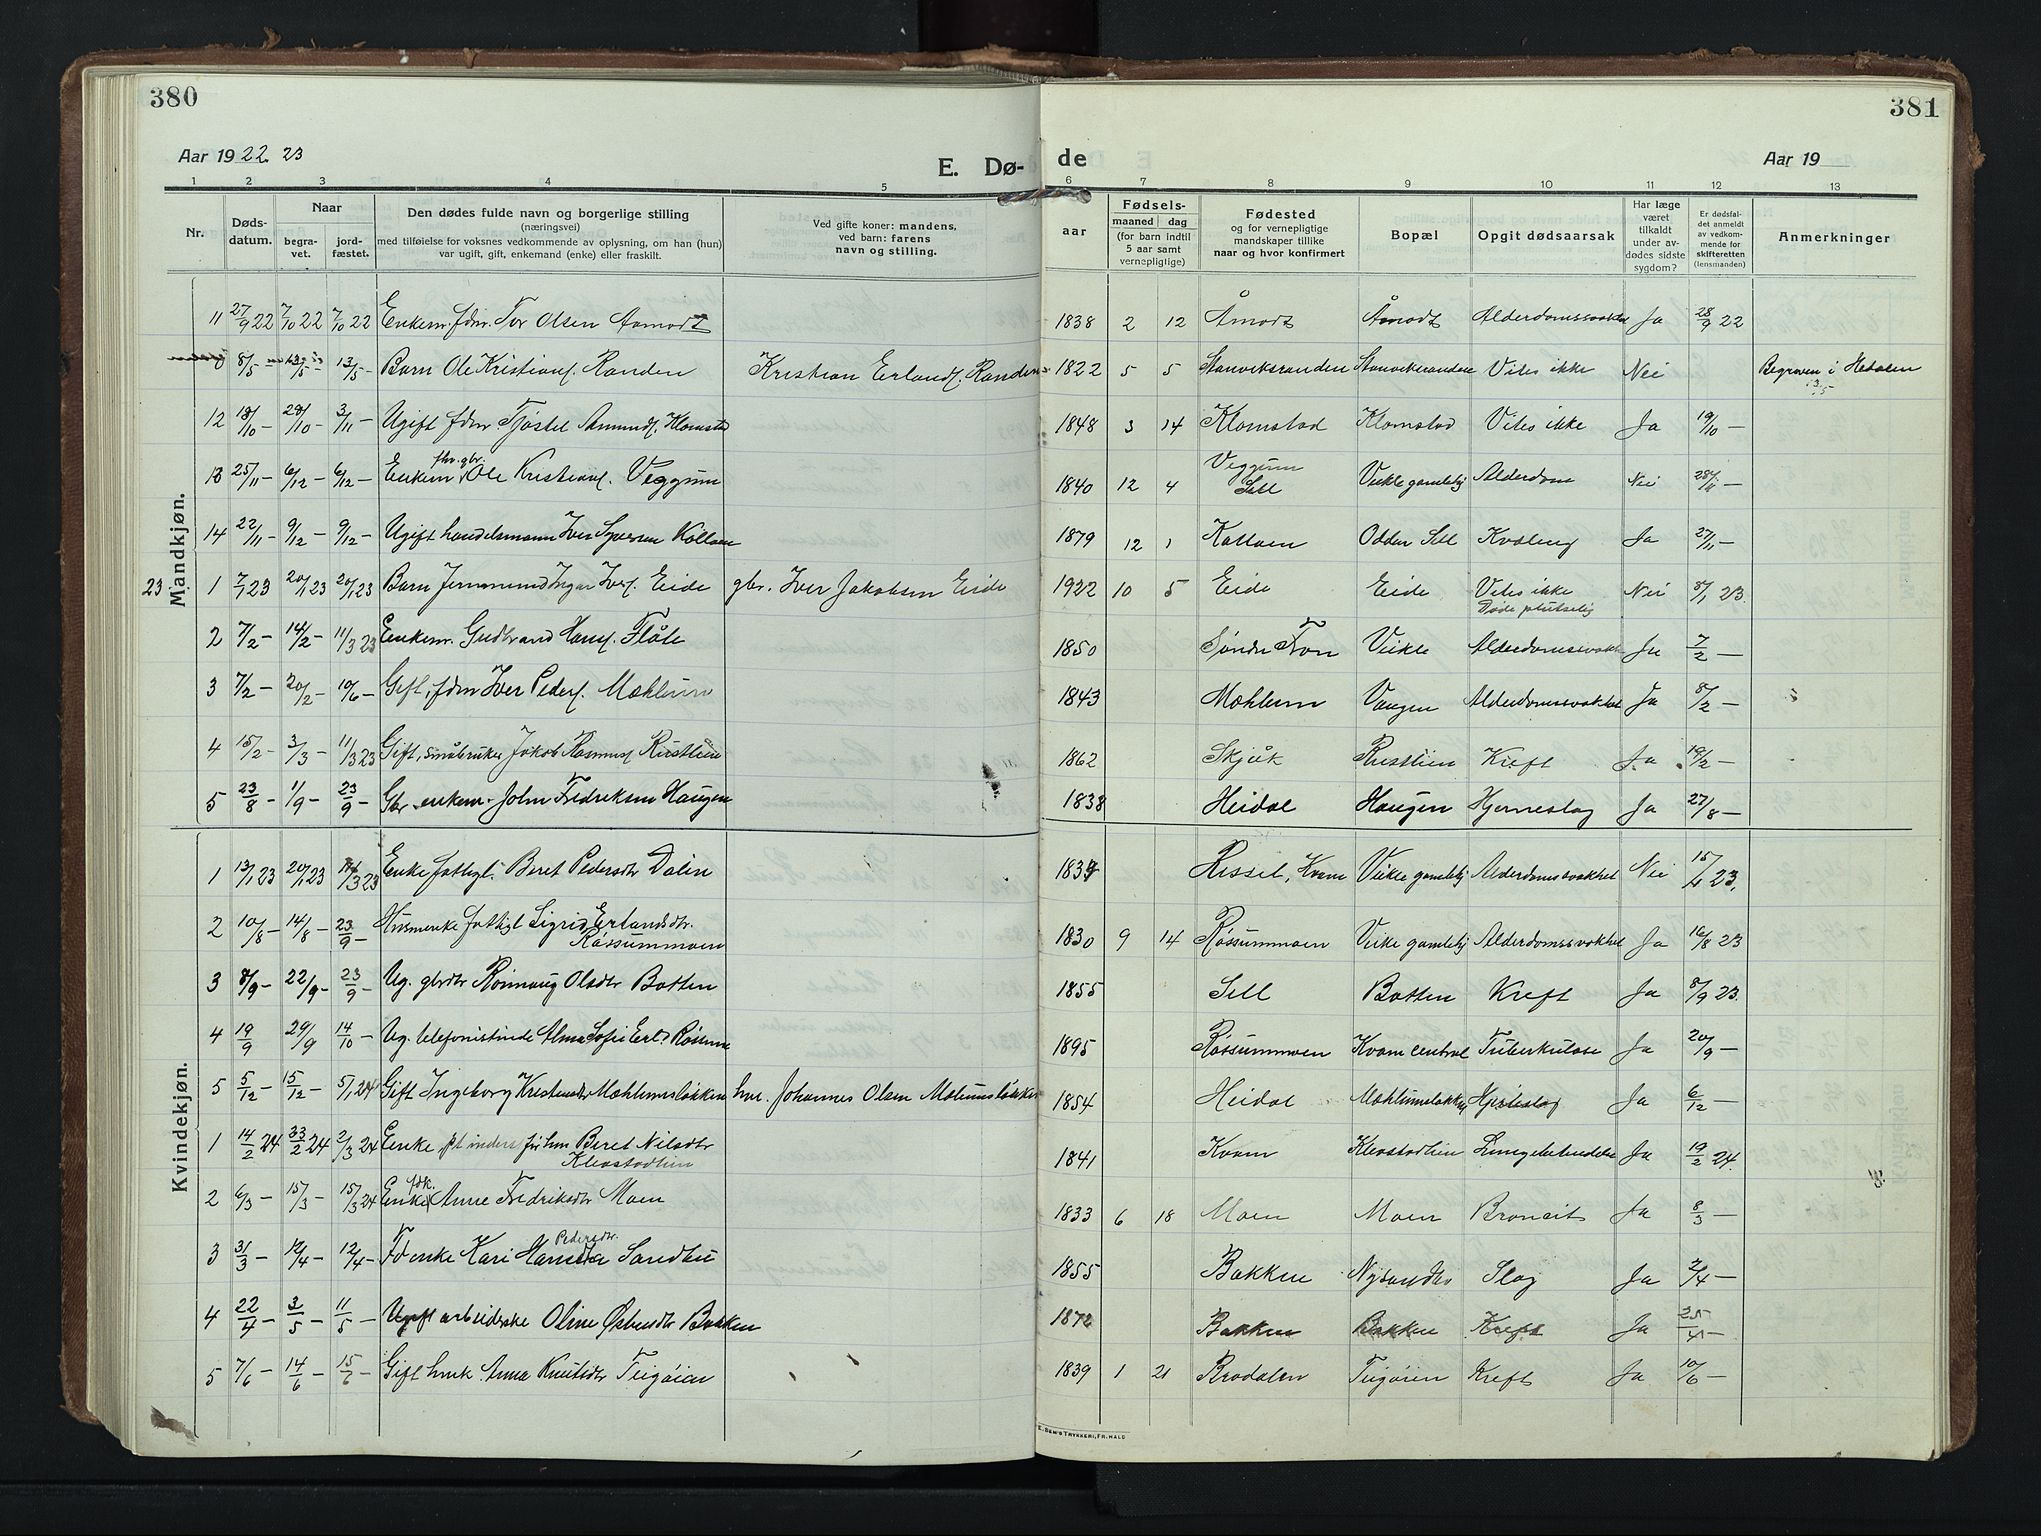 380
381
Aar 1922. 23
E. Dø-
de
Aar 19
1 2 3 4 5 6 7 8 9 10 11 12 13
Nr.
Døds-
datum.
Naar
begra-
vet.
jord-
fæstet.
Den dødes fulde navn og borgerlige stilling
(næringsvei)
med tilføielse for voksnes vedkommende av oplysning, om han (hun)
var ugift, gift, enkemand (enke) eller fraskilt.
Ved gifte koner: mandens,
ved barn: farens
navn og stilling.
aar
Fødsels-
maaned dag
(for barn indtil
5 aar samt
vernepligtige)
Fødested
og for vernepligtige
mandskaper tillike
naar og hvor konfirmert
Bopæl
Opgit dødsaarsak
Har læge
været
tilkaldt
under av-
dødes sidste
sygdom?
Er dødsfal-
det anmeldt
av vedkom-
mende for
skifteretten
(lensmanden)
Anmerkninger
Mandkjøn.
11 27/9 22 7/10 22 7/10 22 Enkem. fdm. Tor Olsen Aamodt 1838 2 12 Åmodt Åmodt Alderdomssvakhet Ja 28/9 22
8/5 13/5 13/5 – Barn Ole Kristians. Randen Kristian Erlands. Randen 1822 5 5 Stanviksranden Stanviksranden Vites ikke Nei Begraven i Hedalen
12 18/10 – 28/10 – 3/11 – Ugift fdm. Tjøstel Amunds. Klomstad 1848 3 14 Klomstad Klomstad Vites ikke Ja 19/10 –
fhv. gbr.
13 25/11 – 6/12 – 6/12 – Enkem Ole Kristians. Veggum 1840 12 4 Veggum Sell Veikle gamlehj Alderdom Nei 28/11 –
14 22/11 – 9/12 – 9/12 – Ugift handelsmann Iver Syversen Kolloen 1879 12 1 Kolloen Odden Sell Kvaleng Ja 27/11 –
23 1 7/1 23 20/1 23 20/1 23 Barn Ingar Ivers. Eide gbr. Iver Jakobsen Eide 1922 10 5 Eide Eide Vites ikke Nei 8/1 23.
Døde plutselig
2 7/2 – 14/2 – 11/3 23 Enkem. Gudbrand Hans. Flåte 1850 Søndre Fron Veikle Alderdomssvakhet Ja 7/2 –
3 7/2 – 20/2 – 10/6 – Gift, fdm Iver Peders. Mæhlum 1843 Mæhlum Vangen Alderdomssvakhet Ja 8/2 –
4 15/2 – 3/3 – 11/3 23 Gift, småbruker Jakob Rasmus. Rustlien 1862 Skjåk Rustlien Kreft Ja 19/2 –
5 23/8 – 1/9 – 23/9 – Gbr. enkem. John Fredriksen Haugen 1838 Heidal Haugen Hjerneslag Ja 27/8 –
Kvindekjøn.
1 13/1 23 20/1 23 3 23 Enke fattigl. Beret Pedersdtr Dalen Kvam Veikle gamlehj Alderdomssvakhet Nei 15/1 23.
2 10/8 – 14/8 – 23/9 – Husmenke fattigl Sigrid Erlandsdtr. 1830 9 14 Røssummoen Veikle gamlehj Alderdomssvakhet Ja 16/8 23
Røssummoen
3 8/9 – 22/9 – 23/9 – Ug. gbrdtr Rønnaug Olsdtr Botten 1855 Sell Botten Kreft Ja 8/9 23.
4 19/9 29/9 14/10 – Ug. telefonistinde Alma Sofie Erl. Røssum 1895 Røssummoen Kvam central Tuberkulose Ja 20/9 –
5 5/12 – 15/12 – 5/1 24 Gift Ingeborg Kristensdtr Mæhlumsløkken hm. Johannes Olsen Mælumsløkken 1854 Heidal Mæhlumsløkken Hjerteslag Ja 6/12 –
1 14/2 24 23/2 24 2/3 24 Enke Beret Nilsdtr 1841 Kvam Klevstadlien Lungebetendelse Ja 19/2 24.
Klevstadlien
fdk.
2 6/3 – 15/3 – 15/3 24 Enke Anne Fredriksdtr Moen 1833 6 18 Moen Moen Broncit Ja 8/3 –
Pedersdtr.
3 31/3 – 12/4 – 12/4 – Fd enke Kari Sandbu 1855 Bakken Nysandbu Slag Ja 2/4 –
4 22/4 – 3/5 – 11/5 – Ugift arbeiderske Oline Øsbendtr Bakken 1872 Bakken Bakken Kreft Ja 25/4 –
5 7/6 – 14/6 – 15/6 – Gift hmk. Anna Knutsdtr Teigøien 1839 1 21 Brodalen Teigøien Kreft Ja 10/6 –
E. SEM'S TRYKKERI, FR.HALD